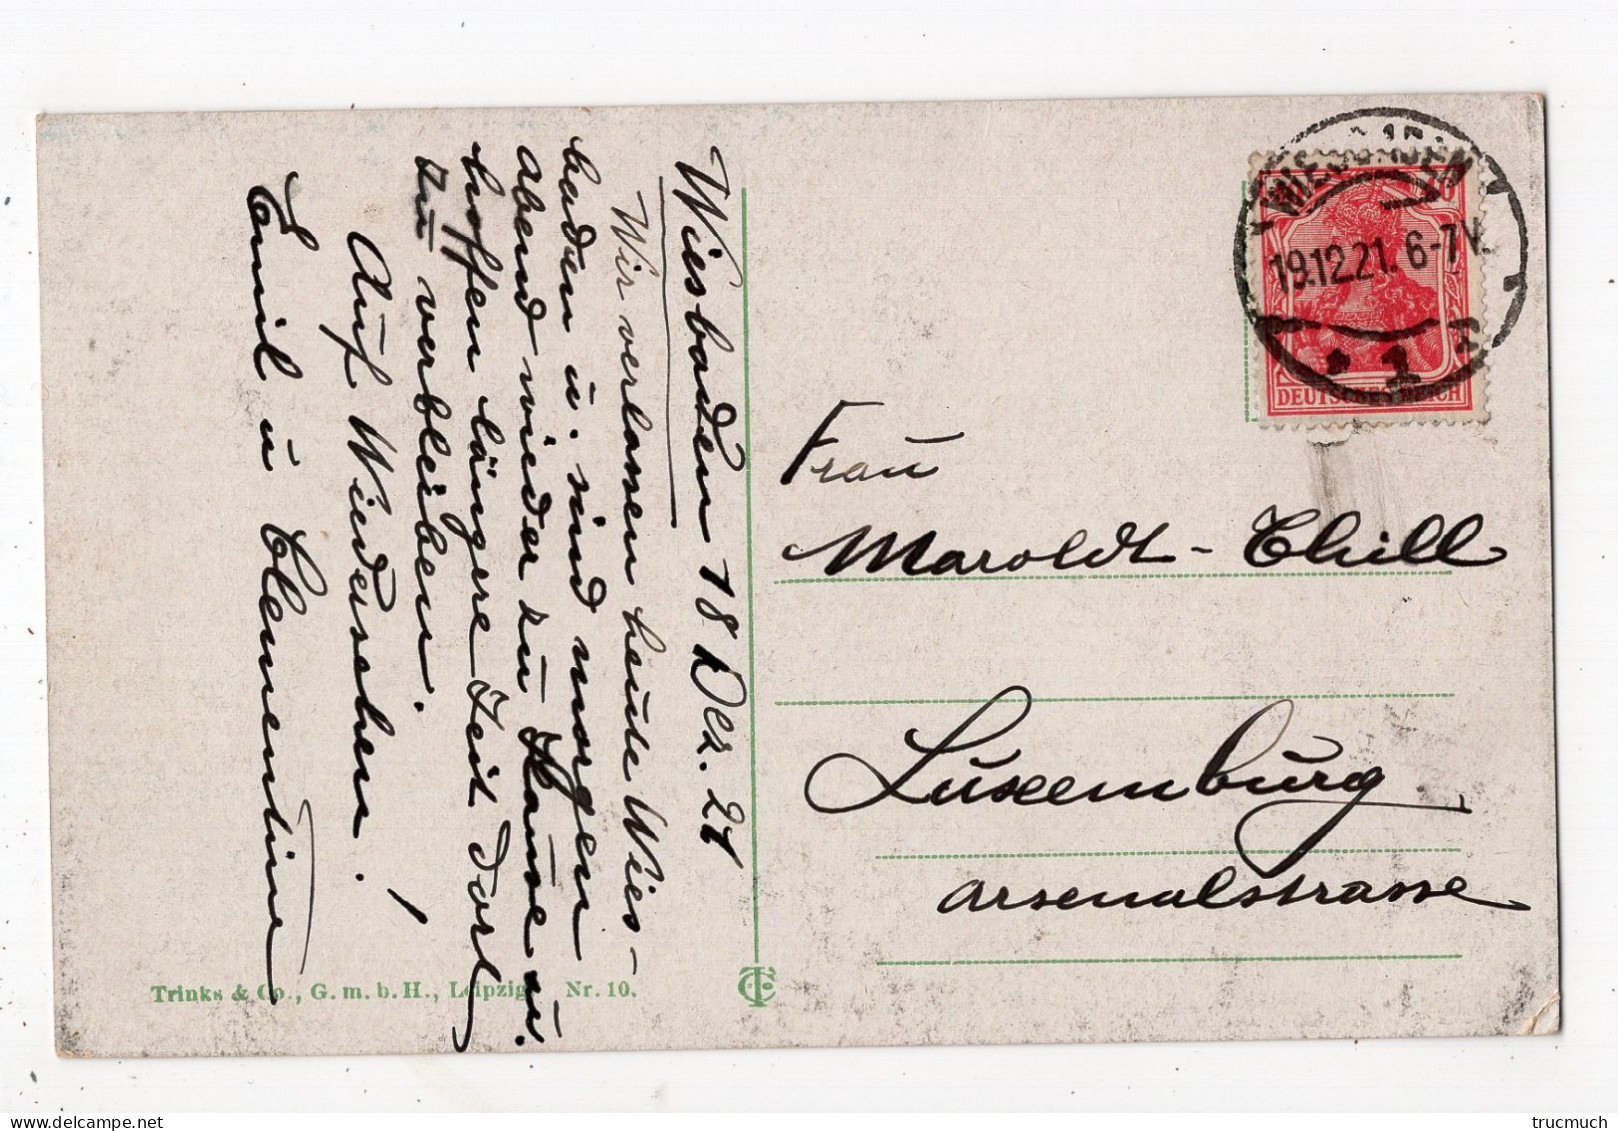 Wiesbaden 18 Dez. 21
Wir verlassen heute Wies-
baden ü. sind morgen
abend wieder zu Hause ü.
hoffen längere Zeit dort
zu verbleiben.
Auf Wiedersehen!
Emil ü Clementine
Trinks & Co., G. m. b. H., Leipzig Nr. 10.
TC
WIESBADEN
19.12.21. 6-7V.
* 1
DEUTSCHES REICH
Frau
Maroldt-Thill
Luxemburg
Arsenalstrasse
trucmuch